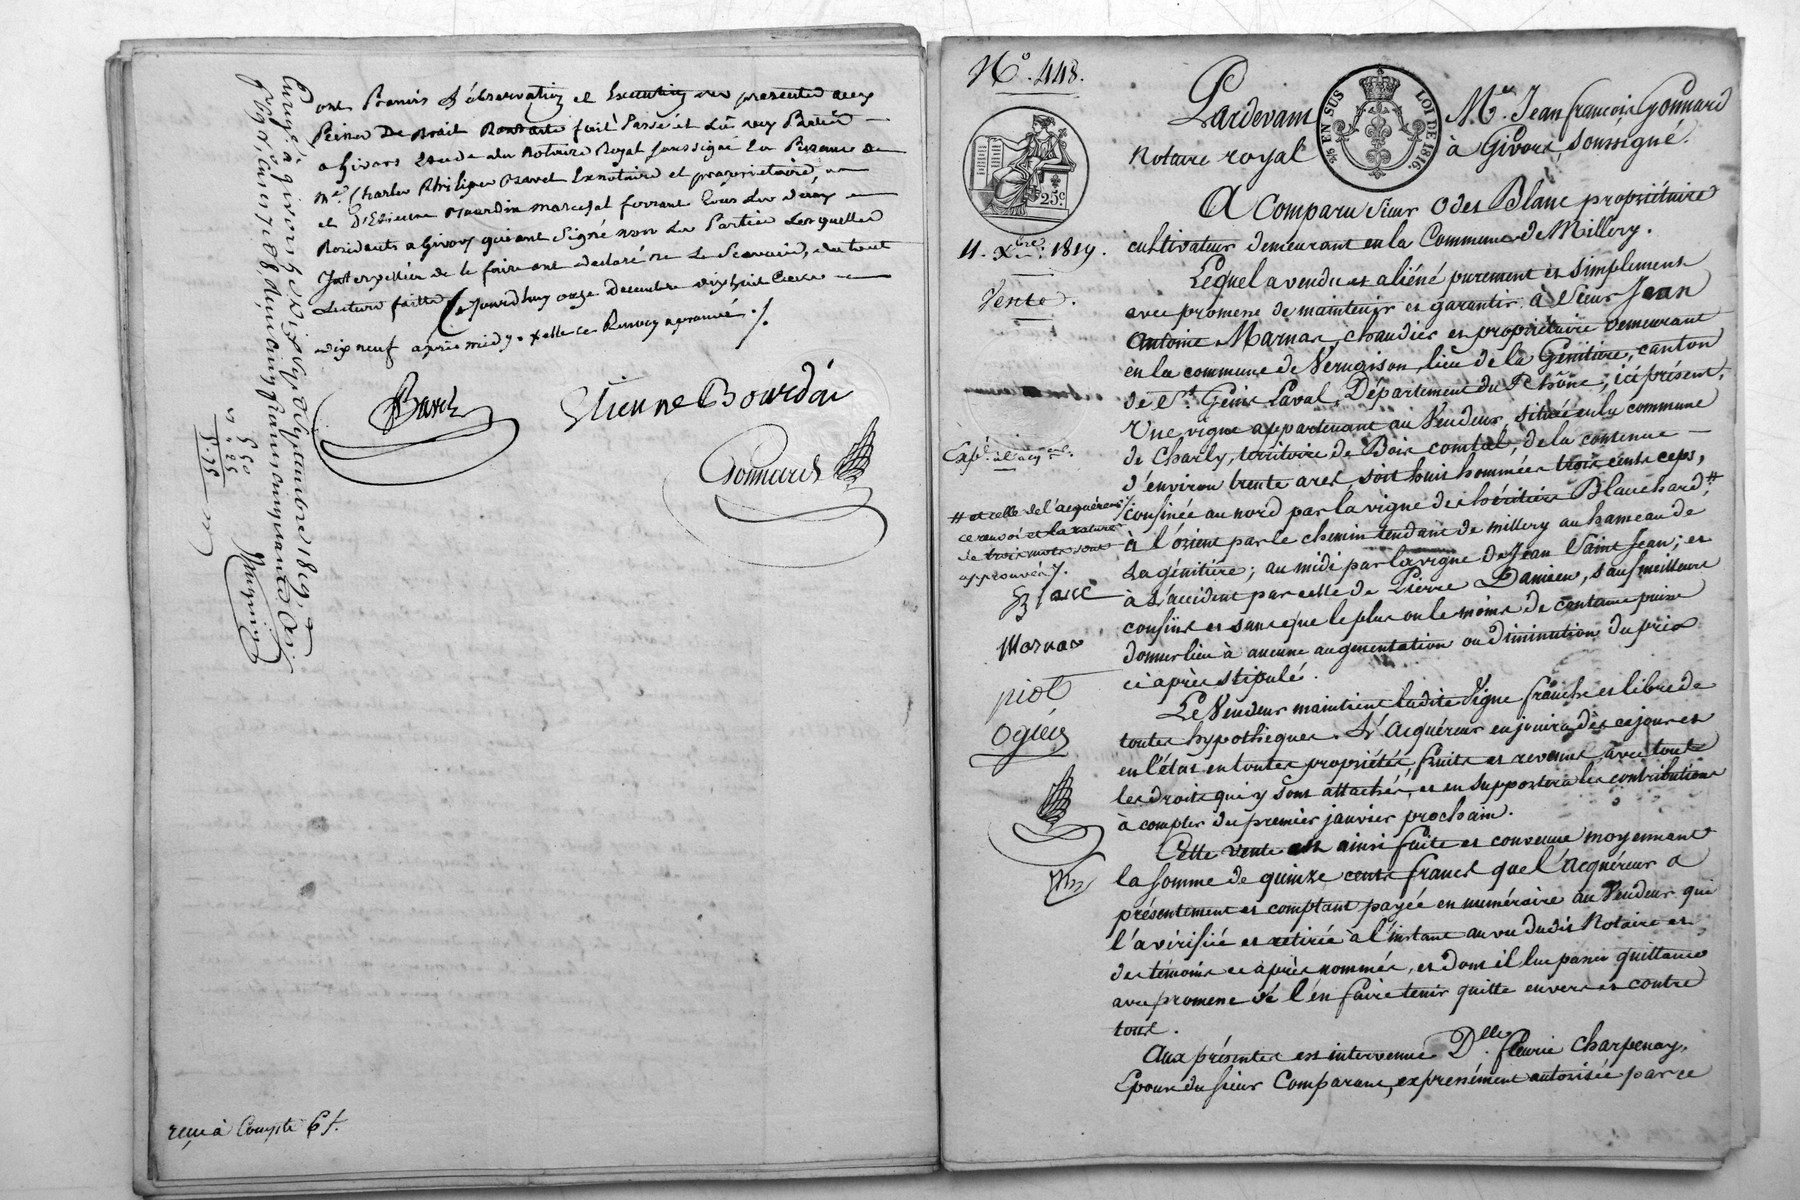 ont Promis d'observation et Execution des presentes avec
Peine De Droit Dont acte fait Passé et Lu aux Parties
a Givors Etude du Notaire Royal soussigné En Presence de
me. Charles Philipe Bavet Exnotaire et proprietaire,
et D'Etienne Bourdin marechal ferrant tous les deux
Residants a Givors qui ont Signé non Les Parties Lesquelles
Interpellées de le faire ont declaré ne Le Scavoir, du tout
Lecture faitte Ce Jourdhuy onze Decembre dix huit Cent
dix neuf après midy. x elle ce Renvoy aprouvé ./.
Etienne Bourdin
Gonnard
Enregé à givors le dix sept décembre 1819,
5. 50
55
reçu à Compte 6 f.
No. 448.
25c.
11. Xbre. 1819.
Vente.
# et celle de l'acquéreur
ce renvoi et la rature
de trois mots sont
approuvés ./.
Blanc
Marnas
piot
Ogier
EN SUS
LOI DE 1816
Pardevant Me. Jean françois Gonnard
Notaire royal à Givors, soussigné.
A Comparu Sieur Odet Blanc propriétaire
cultivateur demeurant en la Commune de Millery.
Lequel a vendu et aliéné purement et simplement
avec promesse de maintenir et garantir à Sieur Jean
Antoine Marnas, chaudier et propriétaire demeurant
en la commune de Vernaison, lieu de la Génitière, canton
de St. Genis Laval, Département du Rhône, ici présent,
Une vigne appartenant au Vendeur, située en la commune
de Charly, territoire de Bois comtal, de la contenue
d'environ trente ares soit huit hommées trois cents ceps,
confinée au nord par la vigne des héritiers Blanchard #
à l'orient par le chemin tendant de millery au hameau de
La génitière; au midi par la vigne de Jean Saint Jean; et
à l'occident par celle de Pierre Damien, sauf meilleurs
confins et sans que le plus ou le moins de contenue puisse
donner lieu à aucune augmentation ou diminution du prix
ci après stipulé.
Le Vendeur maintient ladite Vigne franche et libre de
toutes hypothèques. L'acquéreur en jouira dès ce jour et
en l'état en toutes propriétés, fruits et revenus avec tous
les droits qui y sont attachés, et en supportera les contributions
à compter du premier janvier prochain.
Cette vente est ainsi faite et convenue moyennant
la somme de quinze cents francs que l'acquéreur a
présentement et comptant payée en numéraire au Vendeur qui
l'a vérifiée et retirée à l'instant au vu dudit Notaire et
des témoins ci après nommés, et dont il lui passe quittance
avec promesse de l'en faire tenir quitte envers et contre
tous.
Aux présentes est intervenue Dlle. fleurie Charpenay,
Epouse du sieur Comparant, expressément autorisée par ce